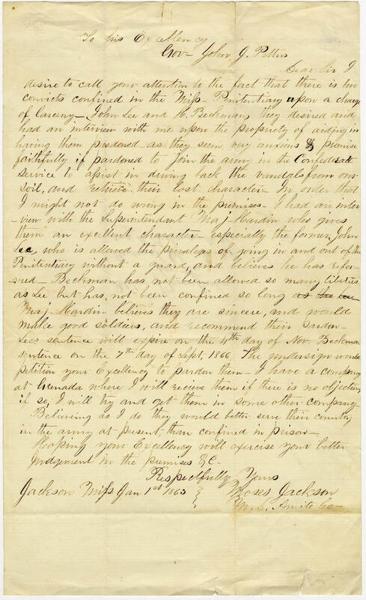 To his Excellency
Gov- John J. Pettus
Dear Sir I
desire to call your attention to the fact that there is two
convicts confined in the Miss. Penitentiary upon a charge
of larceny- John Lee and H. Beckman, they desired and
had an interview with me upon the propriety of aiding in
having them pardoned as they seem very anxious & promise
faithfully if pardoned to join the army in the Confederate
service to assist in driving back the vandals from our
soil, and retrieve their lost character. In order that
I might not do wrong in the premises- I had an inter
-view with the Superintendant Maj. Hardin who gives
them an excellent character- especially the former, John
Lee, who is allowed the privilege of going in and out of the
Penitentiary without a guard, and believes he has refor
-med- Beckman has not been allowed so many liberties
as Lee but has not been confined so long
Maj. Hardin believes they are sincere, and would
make good soldiers, and recommend their pardon-
Lees sentence will expire on the 4th day of Nov. Beckman
sentence on the 7th day of Sept. 1866. The undersign would
petition your Excellency to pardon them- I have a company
at Grenada where I will receive them if there is no objection
if so, I will try and get them in some other company.
Believing as I do they would better serve their country
in the army at present, than confined in prison-
Hoping your Excellency will exercise your better
judgement in the premises &C.
Respectfully Yours
Jackson Miss Jan 1st 1863 Moses Jackson
Amite Co-